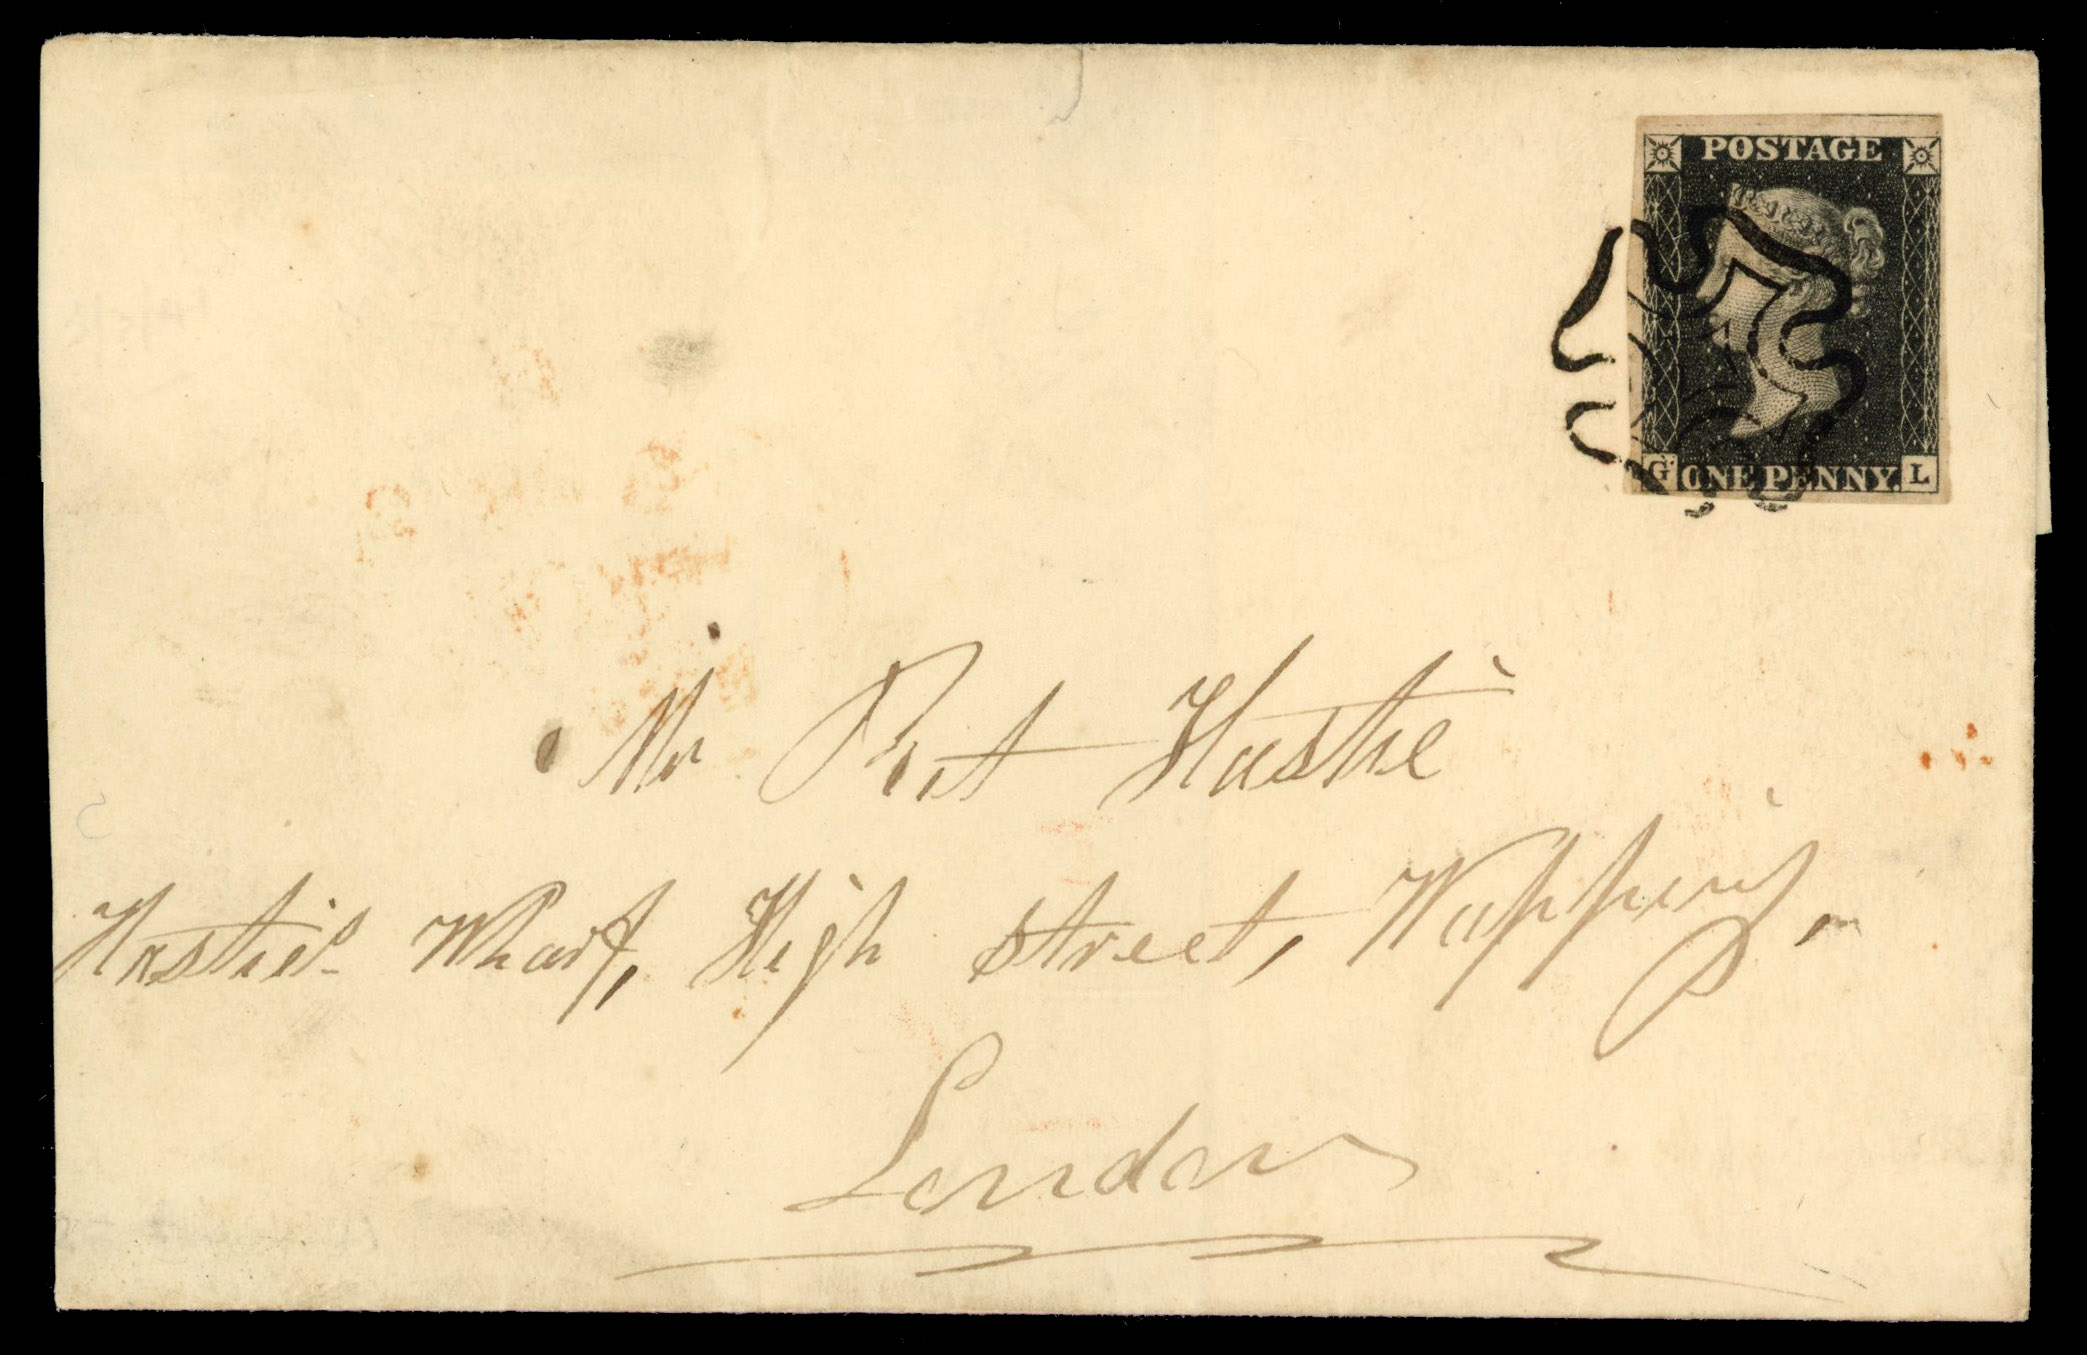 POSTAGE
G ONE PENNY. L
Mr Robt Hastie
Hastie's Wharf, High Street, Wapping,
London